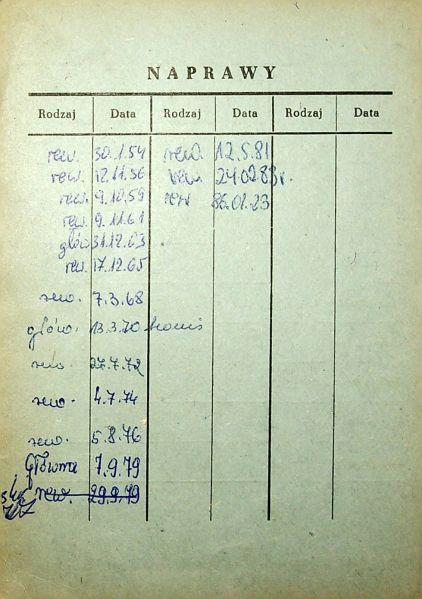 NAPRAWY
Rodzaj Data Rodzaj Data Rodzaj Data
rew. 30.1.54 rew. 12.5.81
rew. 12.11.56 rew. 24.02.83r.
rew. 9.10.59 rew 86.01.23
rew. 9.11.61
głów 31.12.63
rew. 17.12.65
rew. 7.3.68
główn. 13.3.70
rew. 27.7.72
rew. 4.7.74
rew. 5.8.76
Główna 7.9.79
rew. 29.9.79